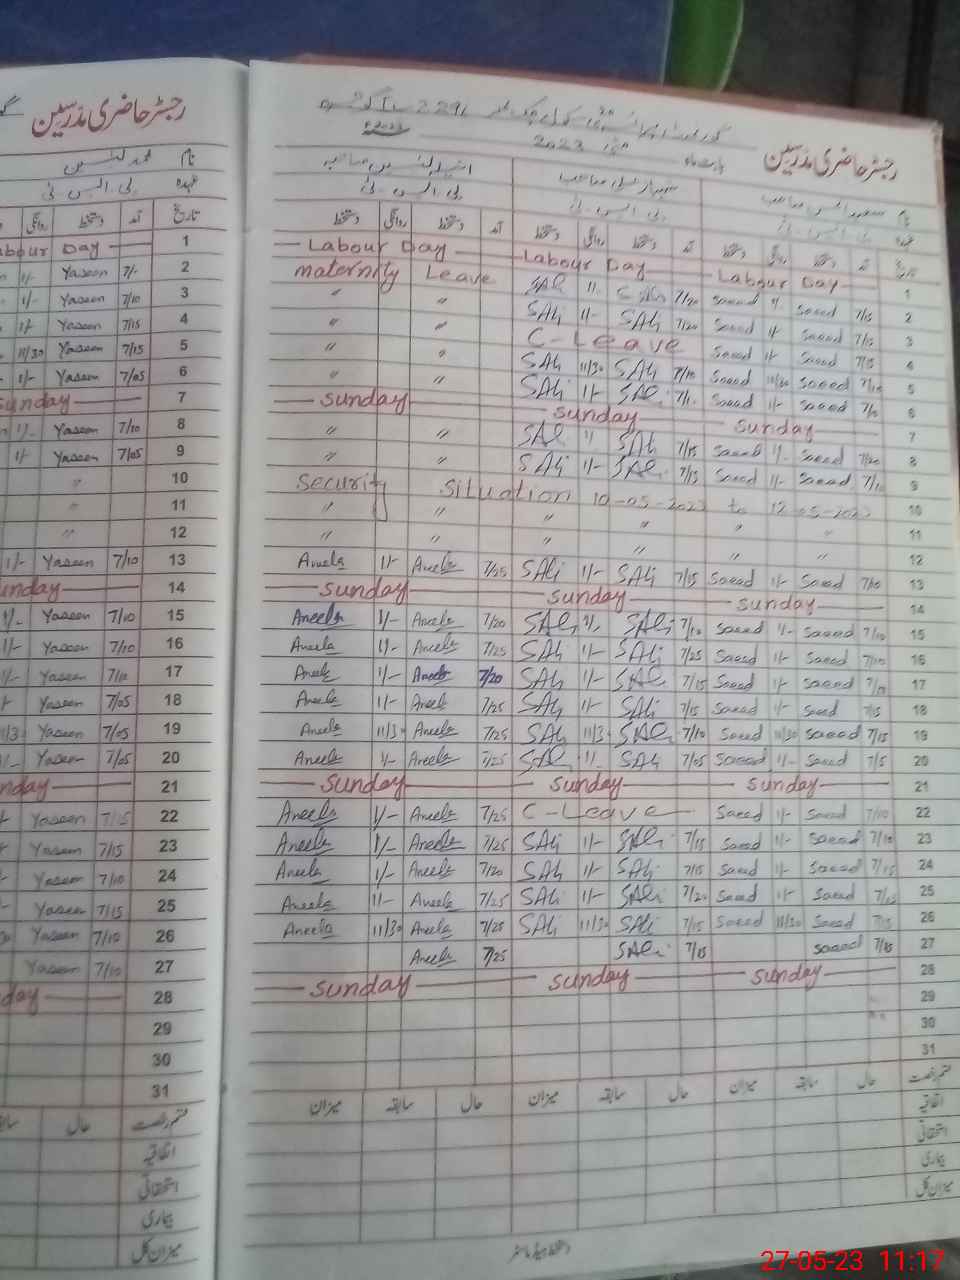 رجسٹر حاضری مدرسین
نام محمد یٰسین
عہدہ پی ایس ٹی
تاریخ آمد دستخط روانگی
1 Labour Day
2 7/- Yaseen 1/-
3 7/10 Yaseen 1/-
4 7/15 Yaseen 1/-
5 7/15 Yaseen 11/30
6 7/05 Yaseen 1/-
7 Sunday
8 7/10 Yaseen 1/-
9 7/05 Yaseen 1/-
10 "
11 "
12 "
13 7/10 Yaseen 1/-
14 Sunday
15 7/10 Yaseen 1/-
16 7/10 Yaseen 1/-
17 7/10 Yaseen 1/-
18 7/05 Yaseen
19 7/05 Yaseen 11/30
20 7/05 Yaseen
21 Sunday
22 7/15 Yaseen
23 7/15 Yaseen
24 7/10 Yaseen
25 7/15 Yaseen
26 7/10 Yaseen
27 7/10 Yaseen
28 Sunday
29
30
31
قسم رخصت حال سابقہ
اتفاقیہ
استحقاقی
بیماری
میزان کل
رجسٹر حاضری مدرسین
بابت ماہ مئی 2023
نام
عہدہ پی ایس ٹی پی ایس ٹی پی ایس ٹی
تاریخ آمد دستخط روانگی دستخط آمد دستخط روانگی دستخط آمد دستخط روانگی دستخط
Labour Day Labour Day Labour Day 1
maternity Leave SAli 1/- SAli 7/20 Saeed 1/- Saeed 7/15 2
" " SAli 1/- SAli 7/20 Saeed 1/- Saeed 7/15 3
" " C-Leave Saeed 1/- Saeed 7/15 4
" " SAli 11/30 SAli 7/10 Saeed 11/30 Saeed 7/10 5
" " SAli 1/- SAli Saeed 1/- Saeed 6
Sunday Sunday Sunday 7
" " SAli 1/- SAli 7/15 Saeed 1/- Saeed 7/20 8
" " SAli 1/- SAli 7/15 Saeed 1/- Saeed 7/10 9
Security Situation 10-05-2023 to 12-05-2023 10
" " " " " " 11
" " " " " " 12
Aneela 1/- Aneela 7/25 SAli 1/- SAli 7/15 Saeed 1/- Saeed 7/10 13
Sunday Sunday Sunday 14
Aneela 1/- Aneela 7/20 SAli 1/- SAli 7/10 Saeed 1/- Saeed 7/10 15
Aneela 1/- Aneela 7/25 SAli 1/- SAli 7/25 Saeed 1/- Saeed 7/10 16
Aneela 1/- Aneela 7/20 SAli 1/- SAli 7/15 Saeed 1/- Saeed 7/10 17
Aneela 1/- Aneela 7/25 SAli 1/- SAli 7/15 Saeed 1/- Saeed 7/15 18
Aneela 11/30 Aneela 7/25 SAli 11/30 SAli 7/10 Saeed 11/30 Saeed 7/15 19
Aneela 1/- Aneela 7/25 SAli 1/- SAli 7/05 Saeed 1/- Saeed 7/5 20
Sunday Sunday Sunday 21
Aneela 1/- Aneela 7/25 C-Leave Saeed 1/- Saeed 7/10 22
Aneela 1/- Aneela 7/25 SAli 1/- SAli 7/15 Saeed 1/- Saeed 7/10 23
Aneela 1/- Aneela 7/20 SAli 1/- SAli 7/15 Saeed 1/- Saeed 7/15 24
Aneela 1/- Aneela 7/25 SAli 1/- SAli 7/20 Saeed 1/- Saeed 25
Aneela 11/30 Aneela 7/25 SAli 11/30 SAli 7/15 Saeed 11/30 Saeed 7/15 26
Aneela 7/25 SAli 7/15 Saeed 7/15 27
Sunday Sunday Sunday 28
29
30
31
قسم رخصت حال سابقہ میزان حال سابقہ میزان حال سابقہ میزان
اتفاقیہ
استحقاقی
بیماری
میزان کل
دستخط ہیڈ ماسٹر
27-05-23 11:17